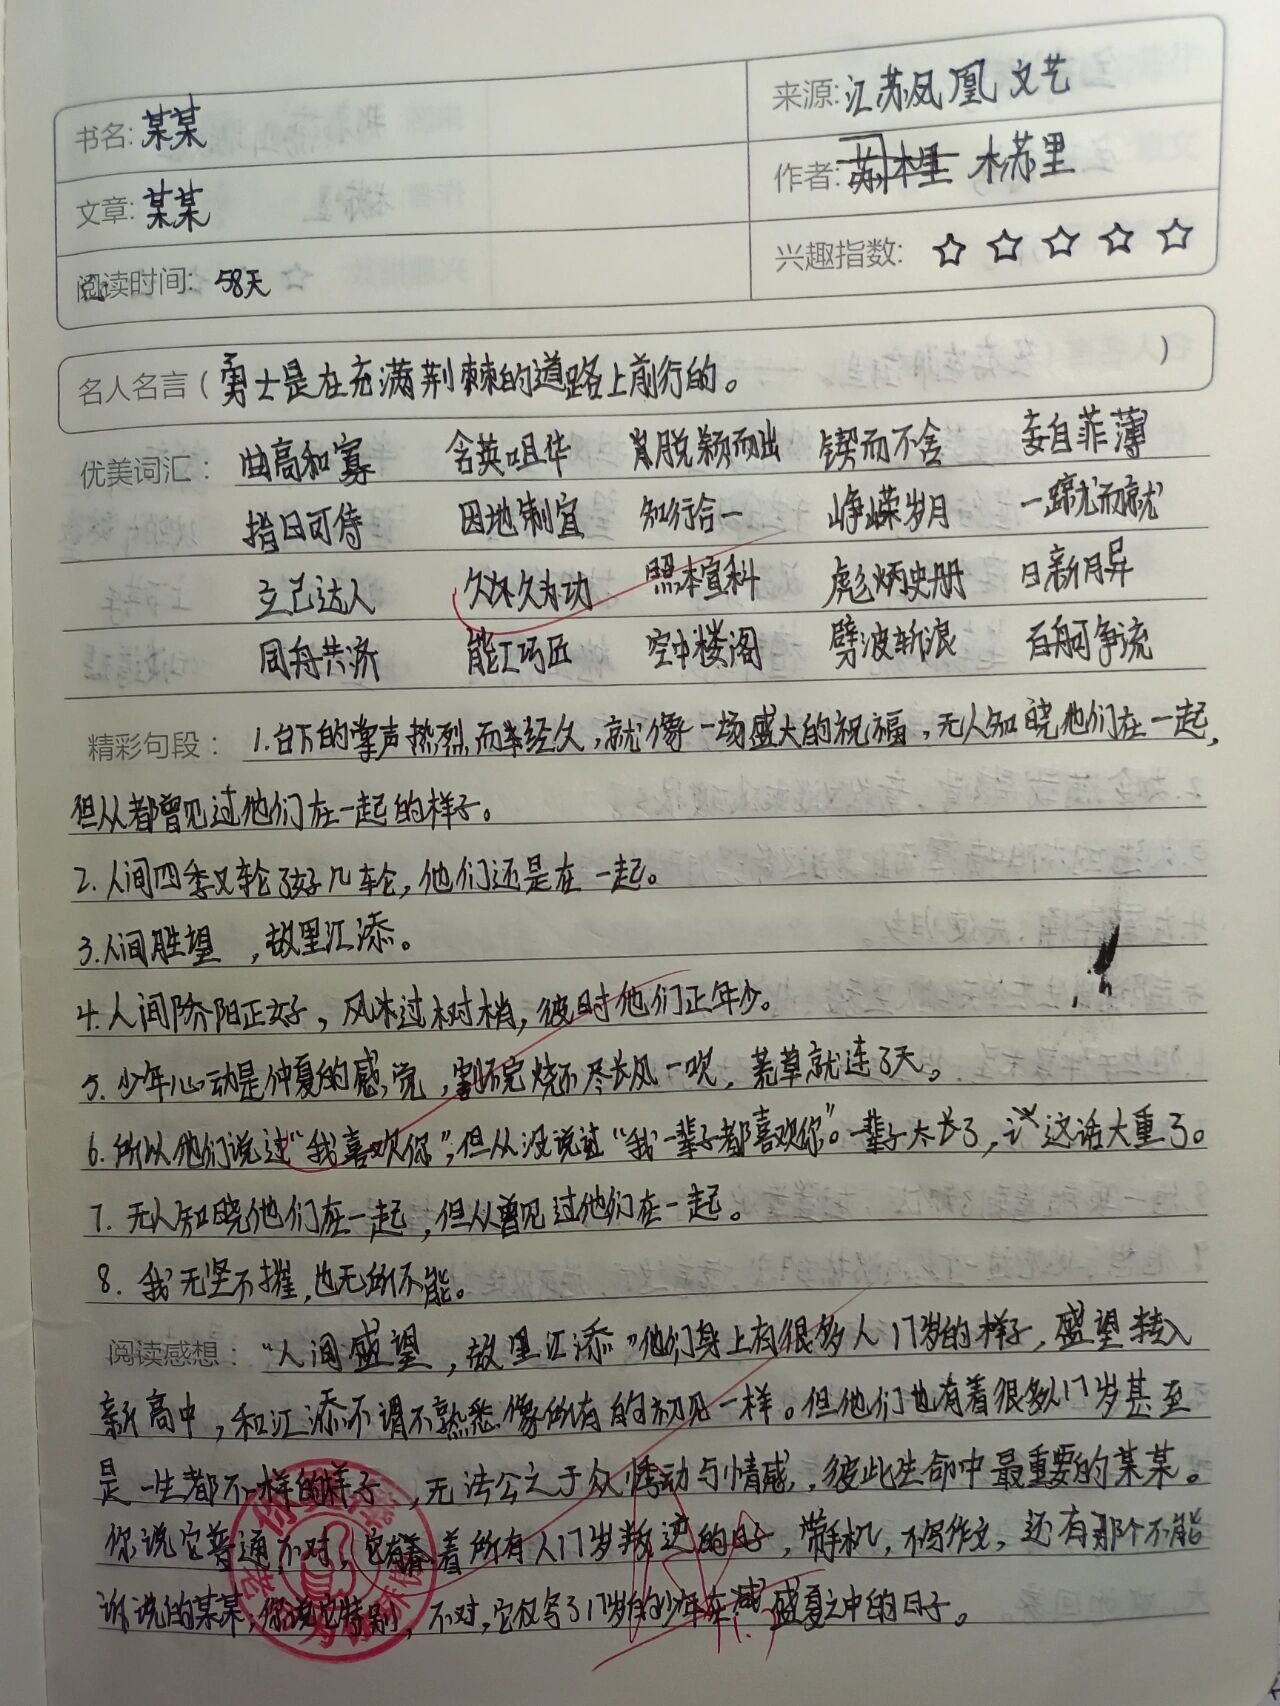 书名: 某某
来源: 江苏凤凰文艺
文章: 某某
作者: 木苏里
阅读时间: 58天
兴趣指数: ☆ ☆ ☆ ☆ ☆
名人名言 ( 勇士是在充满荆棘的道路上前行的。 )
优美词汇: 曲高和寡 含英咀华 脱颖而出 锲而不舍 妄自菲薄
指日可待 因地制宜 知行合一 峥嵘岁月 一蹴而就
立己达人 久久为功 照本宣科 彪炳史册 日新月异
同舟共济 能工巧匠 空中楼阁 劈波斩浪 百舸争流
精彩句段: 1.台下的掌声热烈而经久,就像一场盛大的祝福,无人知晓他们在一起,
但从都曾见过他们在一起的样子。
2.人间四季又轮了好几轮,他们还是在一起。
3.人间胜望,故里江添。
4.人间骄阳正好,风水过树梢,彼时他们正年少。
5.少年心动是仲夏的感觉,割不完烧不尽长风一吹,荒草就连了天。
6.所以他们说过“我喜欢你”,但从没说过“我一辈子都喜欢你”。一辈子太长了,这话太重了。
7.无人知晓他们在一起,但从曾见过他们在一起。
8.我无坚不摧,也无所不能。
阅读感想: “人间盛望,故里江添”他们身上有很多人17岁的样子,盛望转入
新高中,和江添不谓不熟悉.像所有的初见一样。但他们也有着很多人17岁甚至
是一生都不一样的样子,无法公之于众悸动与情感,彼此生命中最重要的某某。
你说它普通,不对,它有着所有人17岁叛逆的日子,带手机,不写作文,还有那个不能
诉说的某某,你说它特别,不对,它仅写了17岁的少年在盛夏之中的日子。